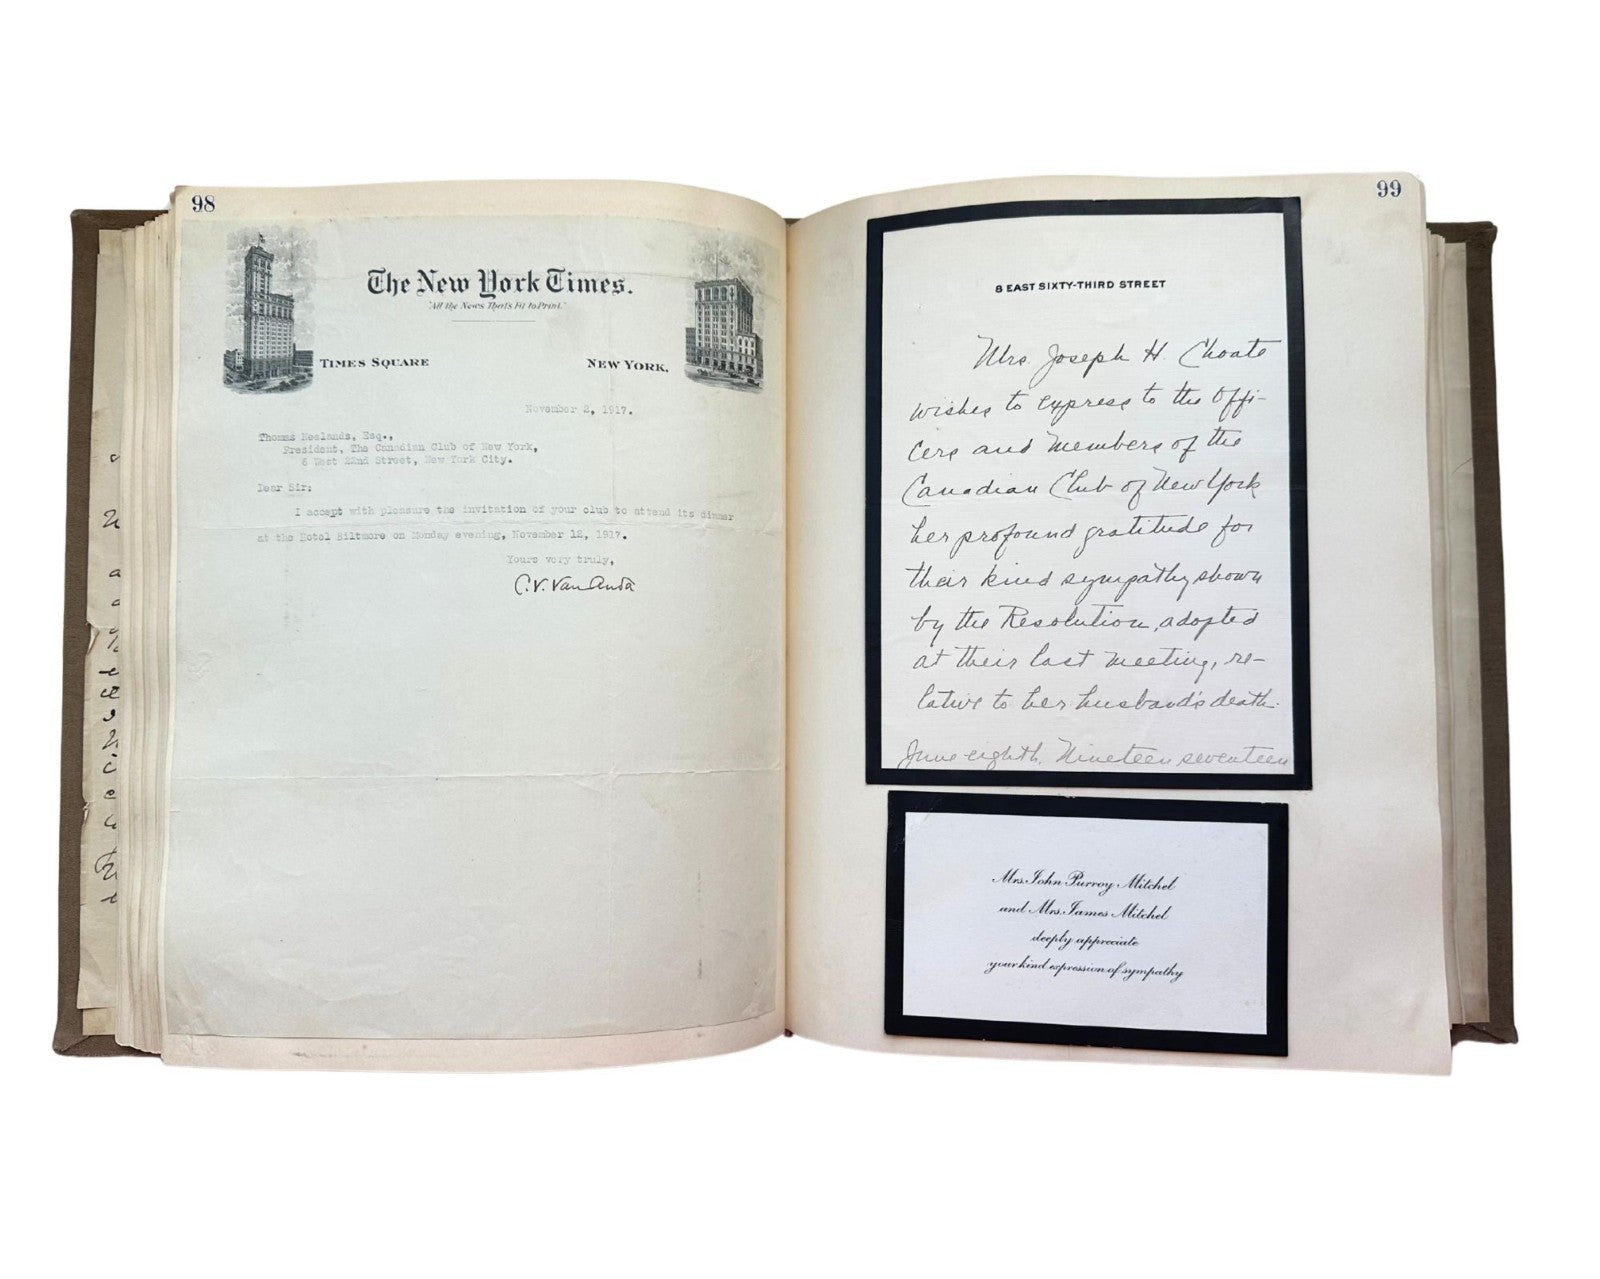 98
The New York Times.
"All the News That's Fit to Print."
TIMES SQUARE NEW YORK,
November 2, 1917.
Thomas Neelands, Esq.,
President, The Canadian Club of New York,
6 West 22nd Street, New York City.
Dear Sir:
I accept with pleasure the invitation of your club to attend its dinner
at the Hotel Biltmore on Monday evening, November 12, 1917.
Yours very truly,
C.V. Van Anda
99
8 EAST SIXTY-THIRD STREET
Mrs. Joseph H. Choate
wishes to express to the Offi-
cers and Members of the
Canadian Club of New York
her profound gratitude for
their kind sympathy shown
by the Resolution, adopted
at their last meeting, re-
lative to her husband's death.
June eighth, Nineteen seventeen
Mrs. John Purroy Mitchel
and Mrs. James Mitchel
deeply appreciate
your kind expression of sympathy